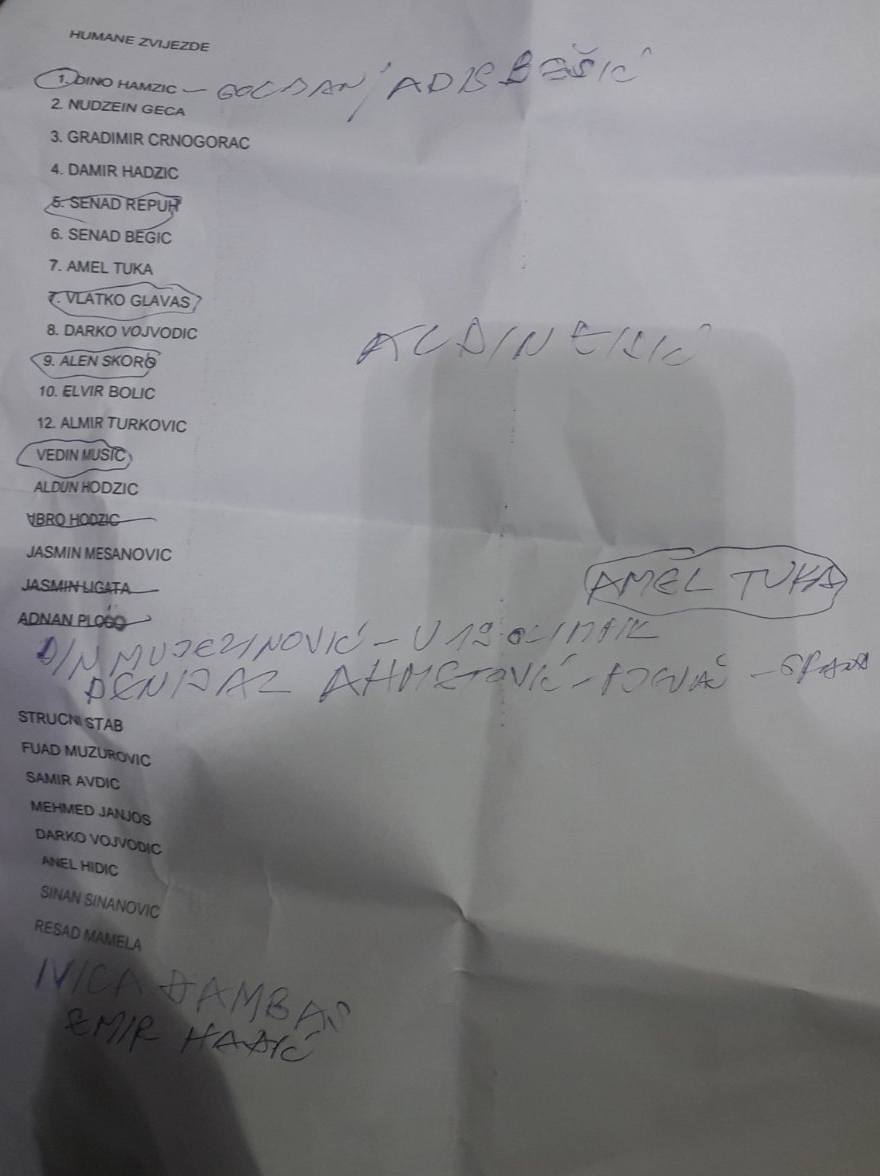 HUMANE ZVIJEZDE
1. DINO HAMZIC - GOLMAN / ADIS BEŠIĆ
2. NUDZEIN GECA
3. GRADIMIR CRNOGORAC
4. DAMIR HADZIC
5. SENAD REPUH
6. SENAD BEGIC
7. AMEL TUKA
7. VLATKO GLAVAS
8. DARKO VOJVODIC
9. ALEN SKORO
ALDIN
10. ELVIR BOLIC
12. ALMIR TURKOVIC
VEDIN MUSIC
ALDUN HODZIC
IBRO HODZIC
JASMIN MESANOVIC
JASMIN LIGATA
AMEL TUKA
ADNAN PLOGO
DIN MUJEZINOVIĆ - U 19 OLIMPIK
DENIJAZ AHMETOVIĆ - PJEVAČ -
STRUCNI STAB
FUAD MUZUROVIC
SAMIR AVDIC
MEHMED JANJOS
DARKO VOJVODIC
ANEL HIDIC
SINAN SINANOVIC
RESAD MAMELA
IVICA
EMIR HADŽIĆ